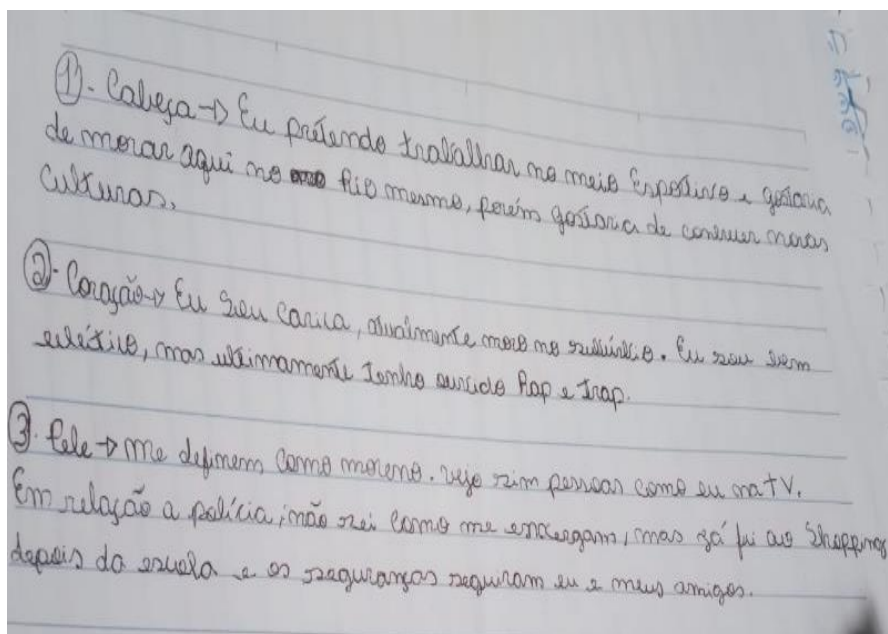 1). Cabeça → Eu pretendo trabalhar no meio Esportivo e gostaria
de morar aqui no Rio mesmo, porém gostaria de conhecer novas
Culturas.
2). Coração → Eu sou carioca, atualmente moro no subúrbio. Eu sou bem
eclético, mas ultimamente tenho ouvido Rap e Trap.
3. Pele → Me definem como moreno. Vejo sim pessoas como eu na TV.
Em relação a polícia, não sei como me enxergam, mas já fui ao Shopping
depois da escola e os seguranças seguiram eu e meus amigos.